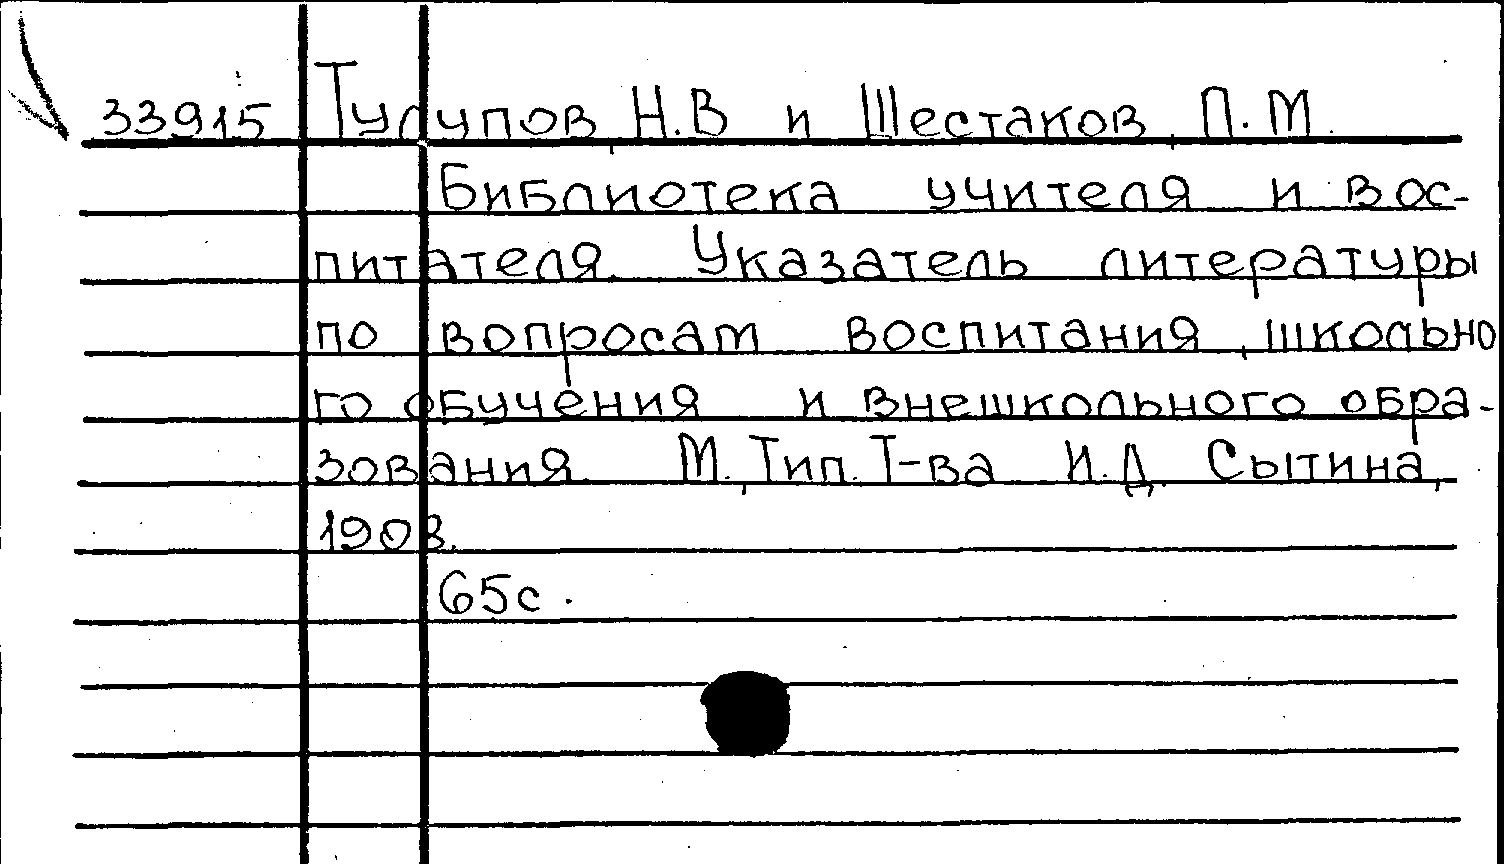 33915 Тулупов, Н.В и Шестаков, П.М.
Библиотека учителя и вос-
питателя. Указатель литературы
по вопросам воспитания, школьно
го обучения и внешкольного обра-
зования. М., Тип. Т-ва И.Д. Сытина,
1903.
65с.